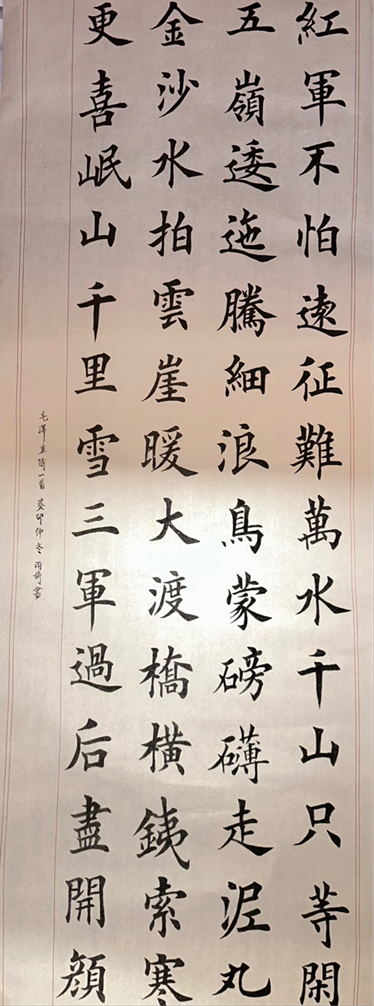 紅軍不怕遠征難萬水千山只等閑
五嶺逶迤騰細浪烏蒙磅礴走泥丸
金沙水拍雲崖暖大渡橋橫鐵索寒
更喜岷山千里雪三軍過后盡開顏
毛澤東詩一首 癸卯仲冬 雨書